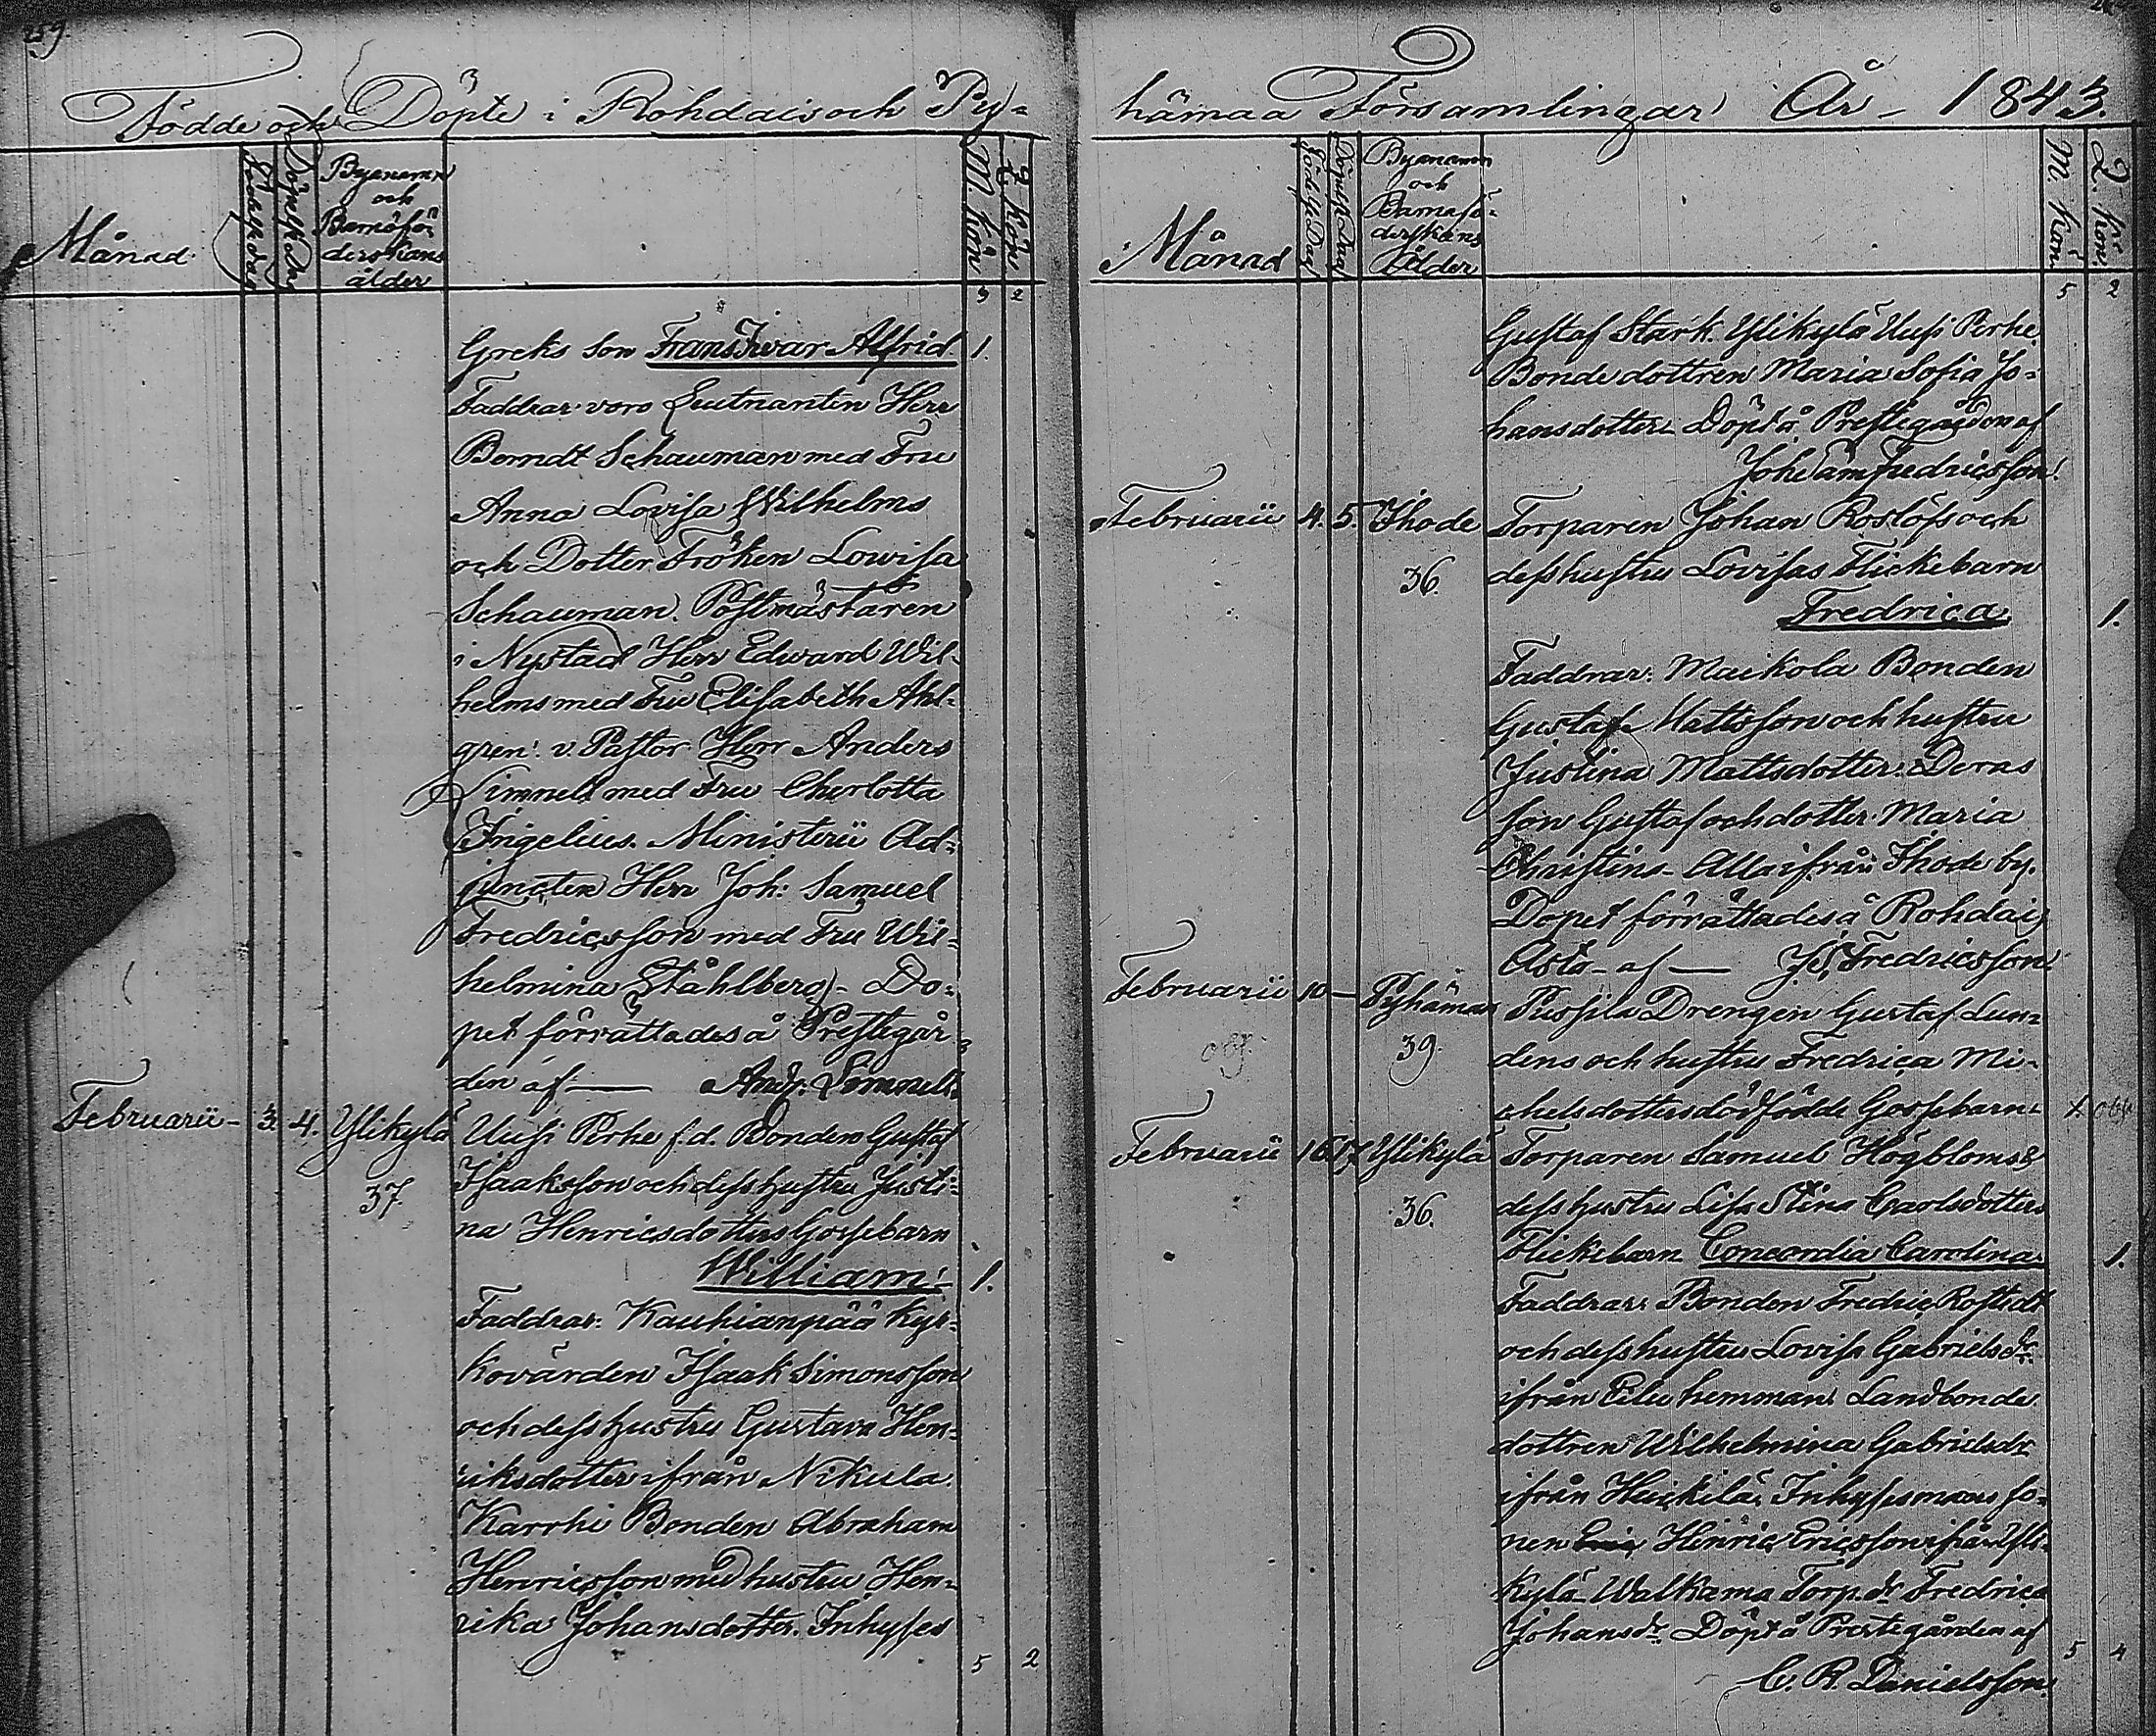 259.
Födde och Döpte i Rohdais och Py-
Månad
Födelsedag
Döpelse Dag
Byanamn
och
Barnsfö-
derskans
ålder
M. kön
Q. kön
3 2
Greks son Frans Ivar Alfrid 1.
Faddrar voro Leutnanten Herr
Berndt Schauman med Fru
Anna Lovisa Wilhelms
och Dotter Fröken Lowisa
Schauman. Postmästaren
i Nystad Herr Edward Wil-
helms med Fru Elisabeth Ahl-
gren. v. Pastor Herr Anders
Limnell med Fru Charlotta
Ingelius. Ministerii Ad-
juncten Herr Joh: Samuel
Fredricsson med Fru Wil-
helmina Ståhlberg - Do-
pet förrättades å Prestegår-
den af — Andr. Limnell.
Februarii - 3. 4. Ylikylä Uusi Perhe f.d. Bonden Gustaf
37. Isaaksson och dess hustru Justi-
na Henricsdotters Gossebarn
William - 1.
Faddrar: Kauhianpää Kyr-
kovärden Isaak Simonsson
och dess hustru Gustava Hen-
riksdotter ifrån Nikula.
Karrhi Bonden Abraham
Henricsson med hustru Hen-
rika Johansdotter. Inhyses
5 2
hämaa Församlingar År - 1843.
Månad
Födelse Dag
Döpelse Dag
Byanamn
och
Barnafö-
derskans
Ålder
M. kön.
Q. kön.
5 2
Gustaf Stark. Ylikylä Uusi Perhe
Bonde dottren Maria Sofia Jo-
hansdotter. Döpt å Prestegården af
Joh: Sam Fredricsson.
Februarii 4. 5. Ihode Torparen Johan Roslöfs och
36. dess hustru Lovisas Flickebarn
Fredrica. 1.
Faddrar: Maikola Bonden
Gustaf Mattsson och hustru
Justina Mattsdotter. Deras
son Gustaf och dotter Maria
Christina - Alla ifrån Ihode by.
Dopet förrättades å Rohdais
Asto - af — J. S. Fredricsson.
Februarii 10 — Pyhämaa Pussila Drengen Gustaf Lun-
39. dens och hustru Fredrica Mi-
chelsdotters dödfödde Gossebarn. X
Februarii 16 17 Ylikylä Torparen Samuel Högbloms &
36. dess hustru Lisa Stina Carlsdotters
Flickebarn Concordia Carolina. 1.
Faddrar: Bonden Fredric Rostedt
och dess hustru Lovisa Gabrielsdr.
ifrån Eilu hemman. Landbonde
dottren Wilhelmina Gabrielsdr
ifrån Heickilä. Inhysesmans so-
nen Henric Ericsson ifrån Yli-
kylä. Walkama Torp. dr. Fredrica
Johansdr. Döpt å Prestegården af
C. R. Danielsson.
5 4